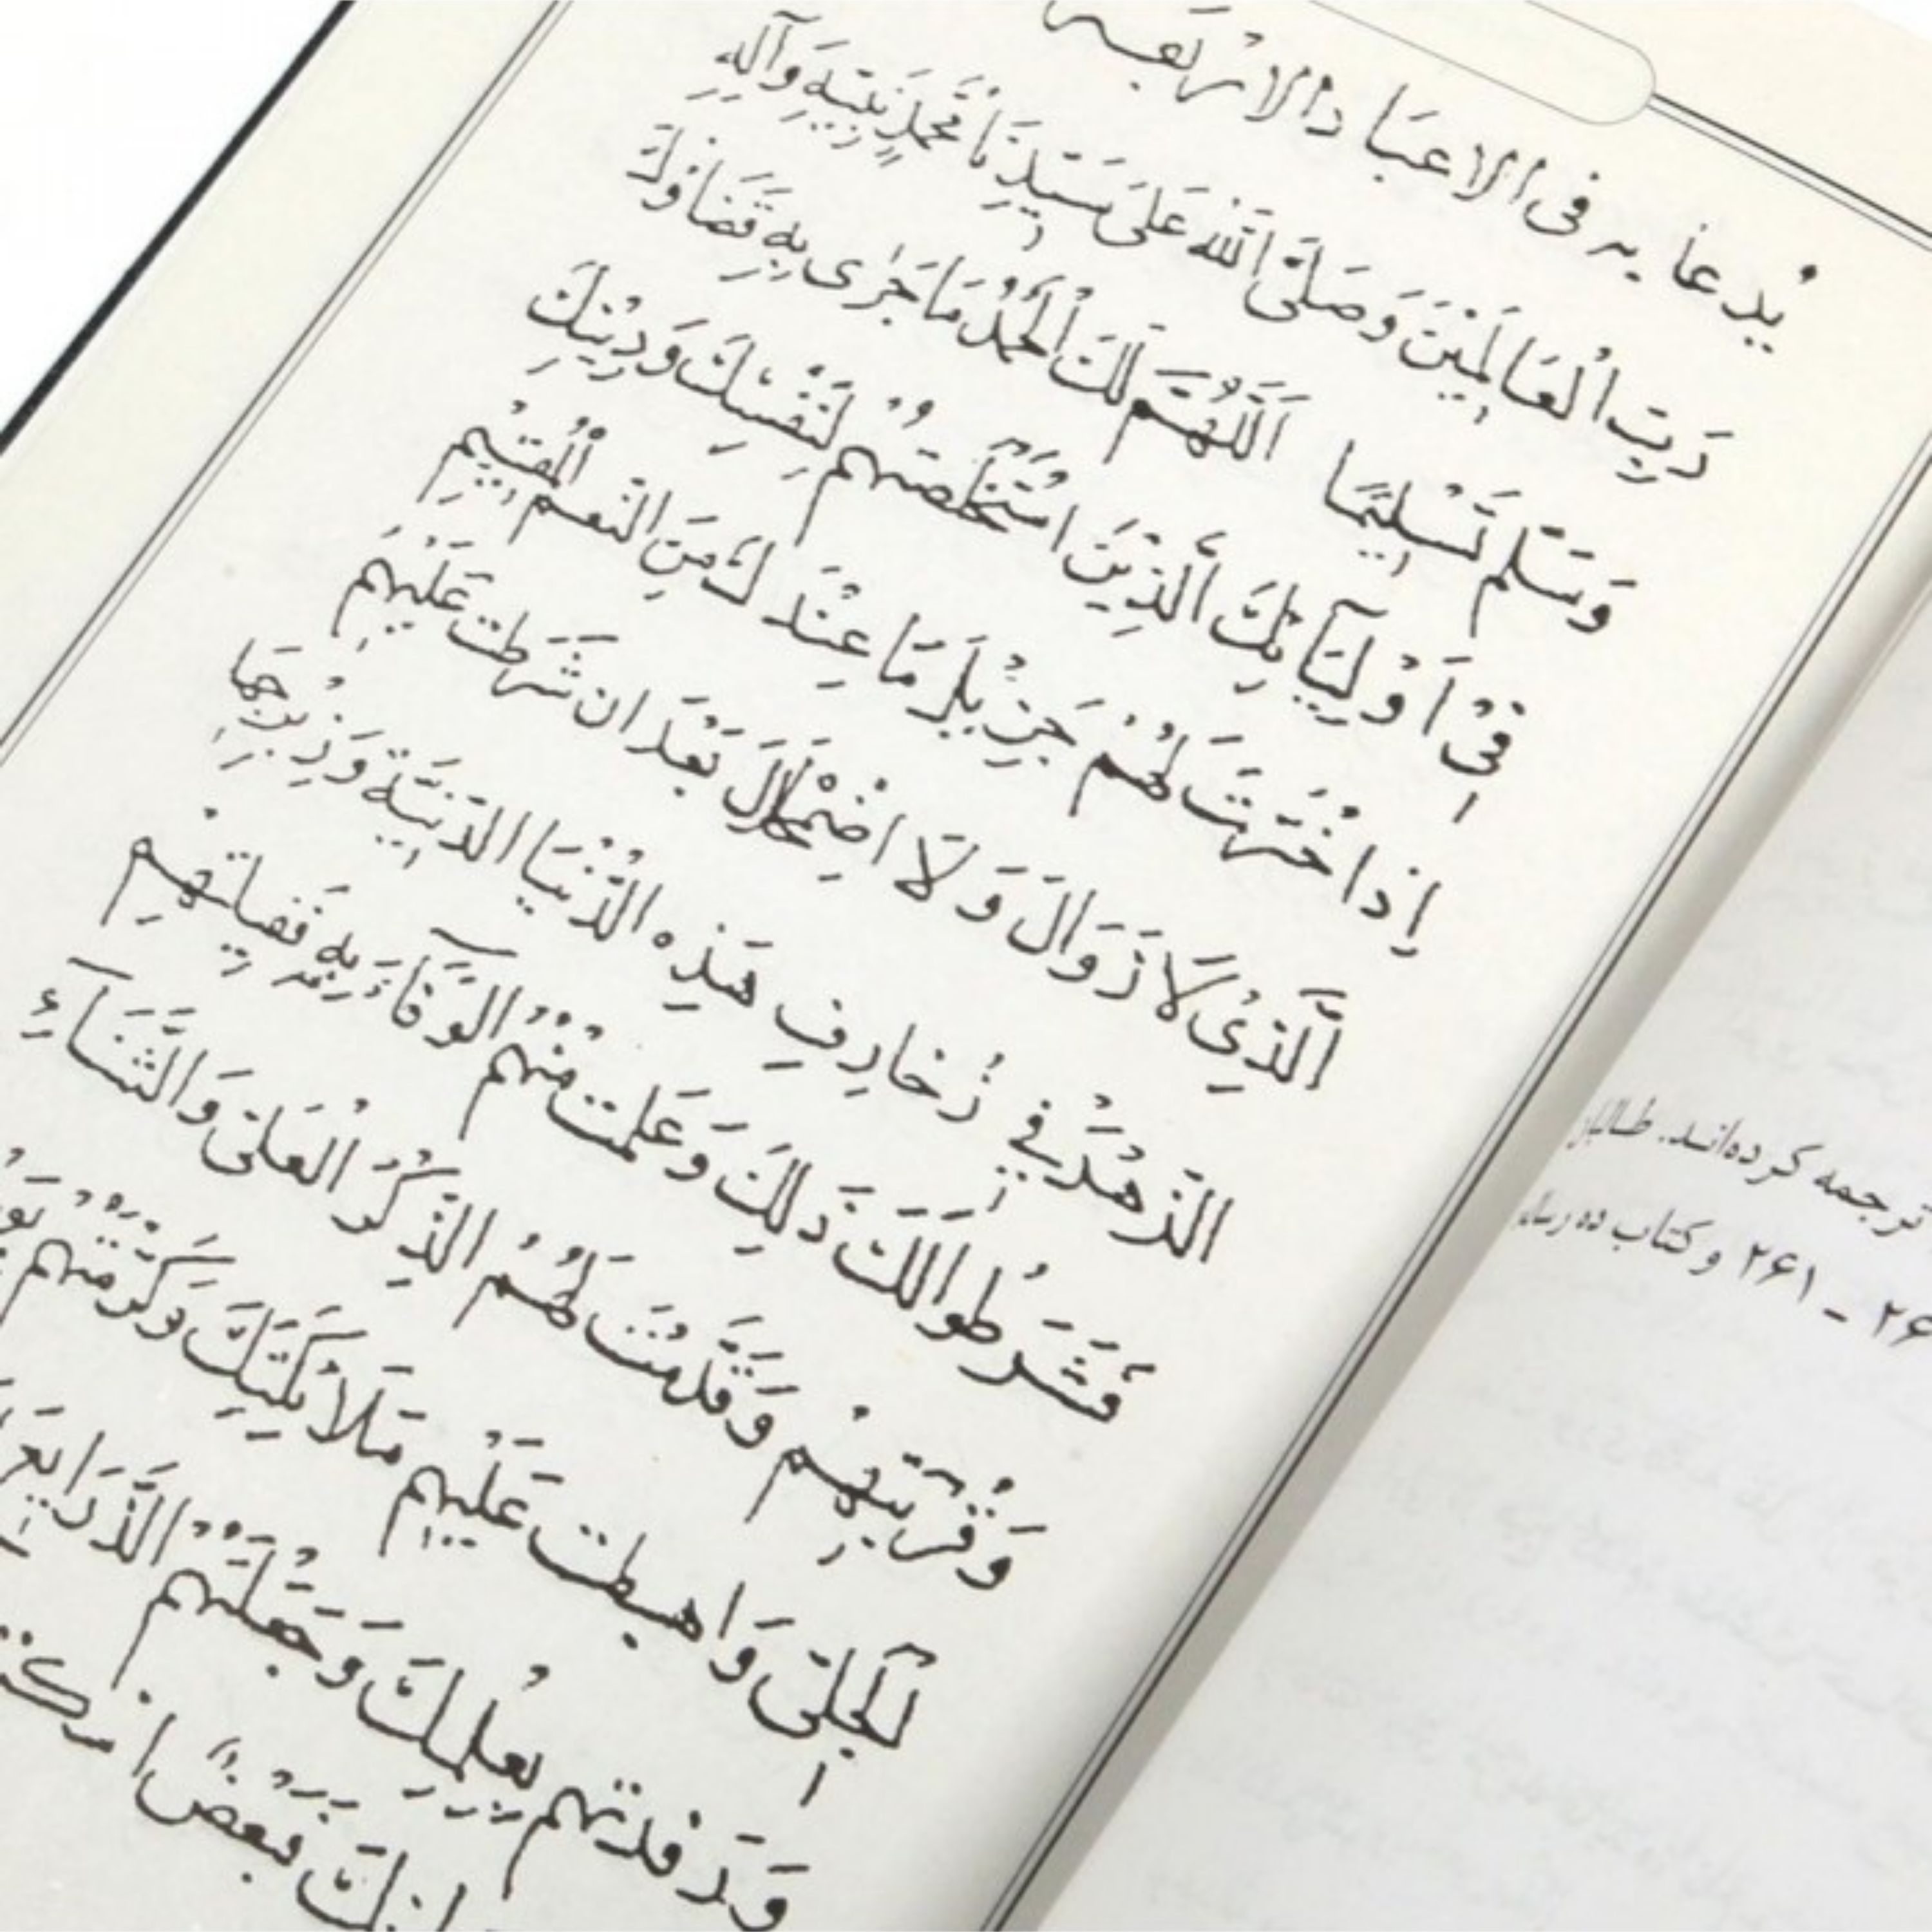 يُدعا به فى الاعياد الاربعه
رَبِّ الْعَالَمِيْنَ وَصَلَّى اللهُ عَلىَ سَيِّدِنَا مُحَمَّدٍ نَبِيِّهِ وَآلِهِ
وَسَلَّمَ تَسْلِيْمًا اَللّٰهُمَّ لَكَ الْحَمْدُ مَا جَرٰى بِهِ قَضَاؤُكَ
فِىْ اَوْلِيَآئِكَ الَّذِيْنَ اسْتَخْلَصْتَهُمْ لِنَفْسِكَ وَدِيْنِكَ
اِذا خْتَرْتَ لَهُمْ جَزِيْلَ مَا عِنْدَكَ مِنَ النَّعِيْمِ الْمُقِيْمِ
اَلَّذِىْ لَا زَوَالَ وَلَا اضْمِحْلَالَ بَعْدَ ان شَرَطتَ عَلَيْهِمْ
الزُّهْدَ فِي زُخارِفِ هَذِهِ الدُّنْيَا الدَّنِيَّةِ وَزِبْرِجِهَا
فَشَرَطُوا لَكَ ذلِكَ وَعَلِمتَ مِنْهُمُ الوَفَآءَ بِهِ فَقَبِلتَهُمْ
وَقَرَّبْتَهُمْ وَقَدَّمْتَ لَهُمُ الذِّكْرَ الْعَلىَّ وَالثَّنَآءَ
الْجَلِىَّ وَاَهبطتَ عَلَيْهِمْ مَلَائِكَتَكَ وَكَرَّمْتَهُمْ
وَرَفَدتَهُم بِعِلْمِكَ وَجَعَلْتَهُمُ الذَّرَايِعَ
فَبَعْضٌ اسكنته
ترجمه کرده‌اند. طالبان
۲۶۱ و کتاب ده رساله